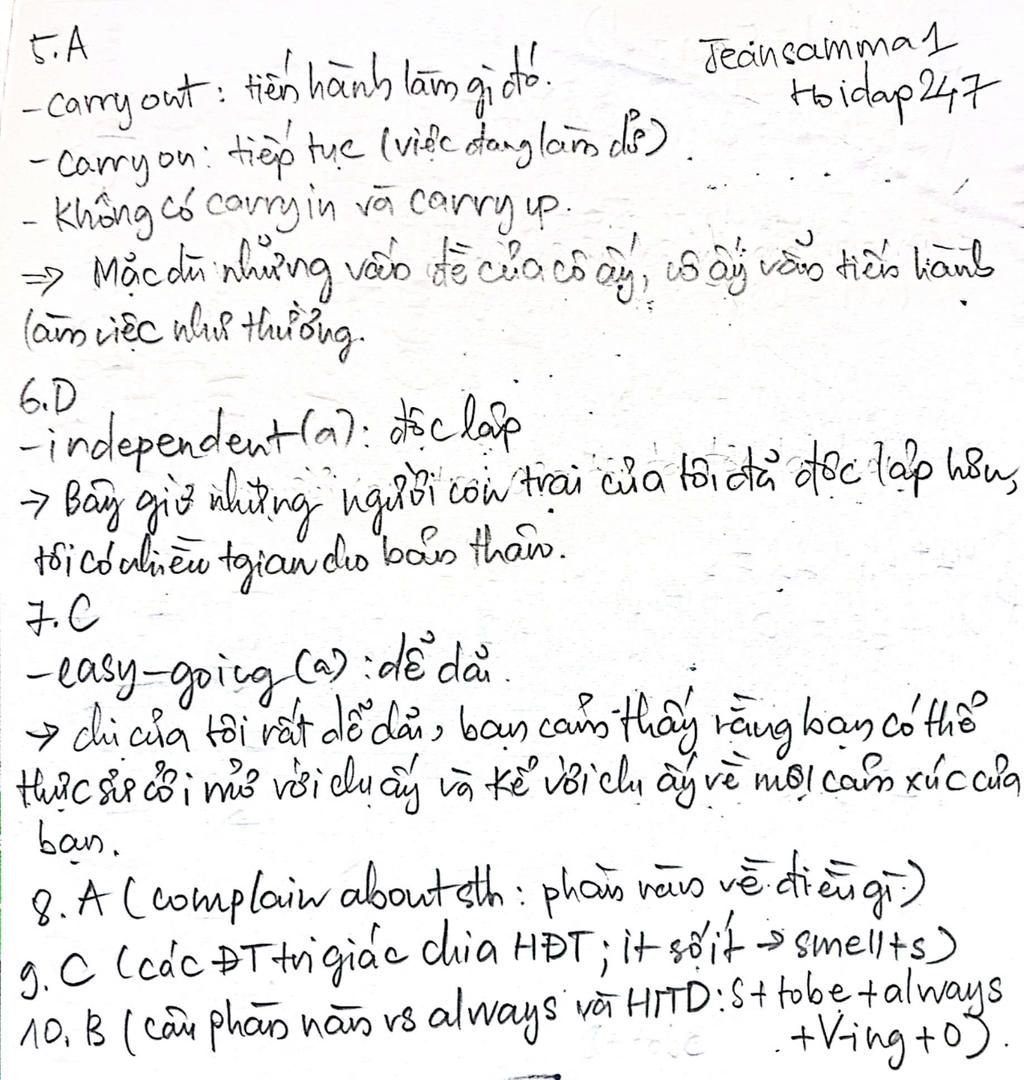 5.A
Jeansamma1
Hoidap247
- carry out : tiến hành làm gì đó.
- carry on : tiếp tục (việc đang làm dở).
- Không có carry in và carry up.
=> Mặc dù những vấn đề của cô ấy, cô ấy vẫn tiến hành
làm việc như thường.
6.D
- independent (a): độc lập
→ Bây giờ những người con trai của tôi đã độc lập hơn,
tôi có nhiều tgian cho bản thân.
7.C
- easy-going (a) : dễ dãi.
→ chị của tôi rất dễ dãi, bạn cảm thấy rằng bạn có thể
thực sự cởi mở với chị ấy và kể với chị ấy về mọi cảm xúc của
bạn.
8. A (complain about sth : phàn nàn về điều gì)
9. C (các ĐT tri giác chia HĐT ; it số ít → smell+s)
10. B (câu phàn nàn vs always và HTTD: S + tobe + always
+ V-ing + O).